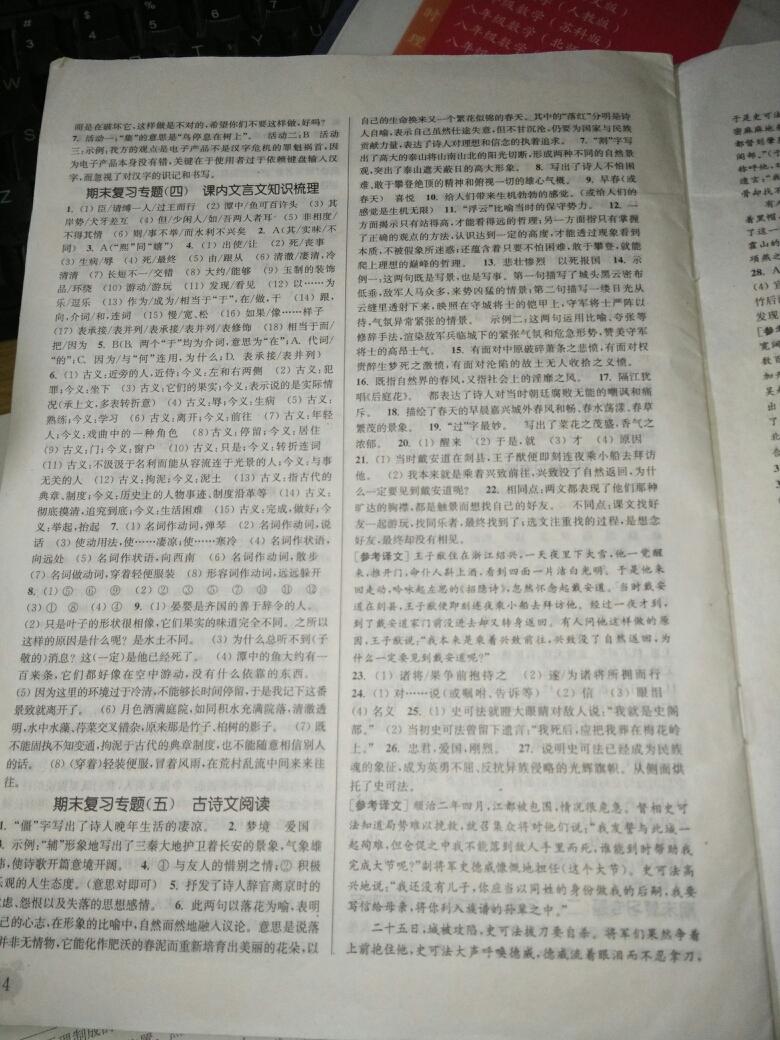 而是在破坏它,这样做是不对的,希望你们不要这样做,好吗?
7. 活动一:“集”的意思是“鸟停息在树上”。 活动二:B 活动
三:示例:我方的观点是电子产品不是汉字危机的罪魁祸首,因
为电子产品本身没有错,关键在于使用者过于依赖键盘输入汉
字,而忽视了对汉字的识记和书写。
期末复习专题(四) 课内文言文知识梳理
1. (1) 臣/请缚一人/过王而行 (2) 潭中/鱼可百许头 (3) 其
岸势/犬牙差互 (4) 但/少闲人/如/吾两人者耳 (5) 非相度/
不得其情 (6) 则/事不举/而水利不兴矣 2. A(其/实味/不
同) 3. A(“熙”同“嬉”) 4. (1) 出使/让 (2) 死/丧事
(3) 生病/辱 (4) 死/最终 (5) 由/跟从 (6) 清澈/凄清,冷
清清 (7) 长短不一/交错 (8) 大约/能够 (9) 玉制的装饰
品/环绕 (10) 游动/游玩 (11) 发现/看见 (12) 以……为
乐/逗乐 (13) 作为/成为/相当于“于”,在/做,干 (14) 跟,
向,介词/和,连词 (15) 慢/宽,松 (16) 如果/像……样子
(17) 表承接/表并列/表承接/表并列/表修饰 (18) 相当于而/
把/因为 5. B(B. 两个“于”均为介词,意思为“在”;A. 代词/
“的”;C. 因为/与“何”连用,为什么;D. 表承接/表并列)
6. (1) 古义:近旁的人,近侍;今义:左和右两侧 (2) 古义:犯
罪;今义:坐下 (3) 古义:它们的果实;今义:表示说的是实际情
况(承上文,多表转折意) (4) 古义:辱;今义:生病 (5) 古义:
熟练;今义:学习 (6) 古义:离开;今义:前往 (7) 古义:年轻
人;今义:戏曲中的一种角色 (8) 古义:停留;今义:居住
(9) 古义:门;今义:窗户 (10) 古义:只是;今义:转折连词
(11) 古义:不汲汲于名利而能从容流连于光景的人;今义:与事
无关的人 (12) 古义:拘泥;今义:泥土 (13) 古义:指古代的
典章、制度;今义:历史上的人物事迹、制度沿革等 (14) 古义:
彻底摸清,追究到底;今义:生活困难 (15) 古义:完成,做好;今
义:举起,抬起 7. (1) 名词作动词,弹琴 (2) 名词作动词,说
话 (3) 使动用法,使……凄凉;使……寒冷 (4) 名词作状语,
向远处 (5) 名词作状语,向西南 (6) 名词作动词,散步
(7) 名词做动词,穿着轻便服装 (8) 形容词作动词,远远躲开
8. (1) ⑤ ⑥ ⑨ (2) ② ③ ⑤ ⑦ ⑩ ⑪ ⑫
(3) ① ⑧ (4) ④ 9. (1) 晏婴是齐国的善于辞令的人。
(2) 只是叶子的形状很相像,它们果实的味道完全不同。之所以
这样的原因是什么呢? 是水土不同。 (3) 为什么总听不到(子
敬的)消息? 这(一定)是他已经死了。 (4) 潭中的鱼大约有一
百来条,它们都好像在空中游动,没有什么依靠的东西。
(5) 因为这里的环境过于冷清,不能够长时间停留,于是我记下这番
景致就离开了。 (6) 月色洒满庭院,如同积水充满院落,清澈透
明,水中水藻、荇菜交叉错杂,原来那是竹子、柏树的影子。 (7) 既
不能固执不知变通,拘泥于古代的典章制度,也不能随意相信别人
的话。 (8) (穿着)轻装便服,冒着风雨,在荒村乱流中间来来往
往。
期末复习专题(五) 古诗文阅读
1. “僵”字写出了诗人晚年生活的凄凉。 2. 梦境 爱国
3. 示例:“辅”形象地写出了三秦大地护卫着长安的景象,气象雄
伟,使诗歌开篇意境开阔。 4. ① 与友人的惜别之情;② 积极
乐观的人生态度。(意思对即可) 5. 抒发了诗人辞官离京时的
虑、怨恨以及失落的思想感情。 6. 此两句以落花为喻,表明
己的心志,在形象的比喻中,自然而然地融入议论。意思是说落
并非无情物,它能化作肥沃的春泥而重新培育出美丽的花朵,以
4
自己的生命换来又一个繁花似锦的春天。其中的“落红”分明是诗
人自喻,表示自己虽然仕途失意,但不甘沉沦,仍要为国家与民族
贡献力量,表达了诗人对理想和信念的执着追求。 7. “割”字写
出了高大的泰山将山南山北的阳光切断,形成两种不同的自然景
观,突出了泰山遮天蔽日的高大形象。 8. 写出了诗人不怕困
难、敢于攀登绝顶的精神和俯视一切的雄心气概。 9. 早春(或
春天) 喜悦 10. 给人们带来生机勃勃的感觉。(或给人们的
感觉是生机无限) 11. “浮云”比喻当时的保守势力。 12. 一
方面揭示只有站得高,才能看得远的哲理;另一方面指只有掌握
了正确的观点的方法,认识达到一定的高度,才能透过现象看到
本质,不被假象所迷惑;还蕴含着只要不怕困难,敢于攀登,就能
爬上理想的巅峰的哲理。 13. 悲壮惨烈 以死报国 14. 示
例一:这两句既是写景,也是写事。第一句描写了城头黑云密布
低垂,敌军人马众多,来势凶猛的情景;第二句描写一缕日光从
云缝里透射下来,映照在守城将士的铠甲上,守军将士严阵以
待,气氛异常紧张的情景。 示例二:这两句运用比喻、夸张等
修辞手法,渲染敌军兵临城下的紧张气氛和危急形势,赞美守军
将士的高昂士气。 15. 有面对中原破碎萧条之悲愤,有面对权
贵醉生梦死之激愤,有面对沦陷的故土无人收拾之义愤。
16. 既指自然界的春风,又指社会上的淫靡之风。 17. 隔江犹
唱(后庭花) 都表达了诗人对当时朝廷腐败无能的嘲讽和痛
斥。 18. 描绘了春天的早晨嘉兴城外春风和畅、春水荡漾、春草
繁茂的景象。 19. “过”字最妙。 写出了菜花之茂盛,香气之
浓郁。 20. (1) 醒来 (2) 于是,就 (3) 才 (4) 原因
21. (1) 当时戴安道在剡县,王子猷便即刻连夜乘小船去拜访
他。 (2) 我本来就是乘着兴致前往,兴致没了自然返回,为什
么一定要见到戴安道呢? 22. 相同点:两文都表现了他们那种
旷达的胸襟,都是触景而想找自己的好友。 不同点:课文找好
友一起游玩,找同乐者,最终找到了;选文注重找的过程,是想念
好友,最终却没有相见。
[参考译文] 王子猷住在浙江绍兴,一天夜里下大雪,他一觉醒
来,推开门,命仆人斟上酒,看到四面一片洁白光明。于是他来
回走动,吟咏起左思的《招隐诗》,忽然怀念起戴安道。当时戴安
道在剡县,王子猷便即刻连夜乘小船去拜访他。经过一夜才到,
到了戴安道家门前没进去却又转身返回。有人问他这样做的原
因,王子猷说:“我本来是乘着兴致前往,兴致没了自然返回,为
什么一定要见到戴安道呢?”
23. (1) 诸将/果争前抱持之 (2) 遂/为诸将所拥而行
24. (1) 对……说(或嘱咐、告诉等) (2) 信 (3) 眼泪
(4) 名义 25. (1) 史可法就瞪大眼睛对敌人说:“我就是史阁
部。” (2) 当初史可法曾留下遗言:“我死后,应把我葬在梅花岭
上。” 26. 忠君,爱国,刚烈。 27. 说明史可法已经成为民族
魂的象征,成为英勇不屈、反抗异族侵略的光辉旗帜。从侧面烘
托了史可法。
[参考译文] 顺治二年四月,江都被包围,情况很危急。督相史可
法知道局势难以挽救,就召集众将对他们说:“我发誓与此城一
起殉难,但仓促之中我不能落到敌人手里而死,谁能到时帮助我
完成大节呢?”副将军史德威慷慨地担任(这个大节)。史可法高
兴地说:“我还没有儿子,你应当以同姓的身份做我的后嗣,我要
写信给母亲,将你列入族谱的孙辈之中。”
二十五日,城被攻陷,史可法拔刀要自杀。将军们果然争着
上前抱住他,史可法大声呼唤德威,德威流着眼泪而不忍拿刀,
于是史可
密麻麻地
都督到
阁部。”
称呼他,
遗言:“我
骨却找不
着黑帽
了这一
霍山的
项燕之
28. A
(4) 官
竹后
发现
[参考
宽阔
八年级数学(人教版)
八年级数学(苏科版)
八年级数学(北师